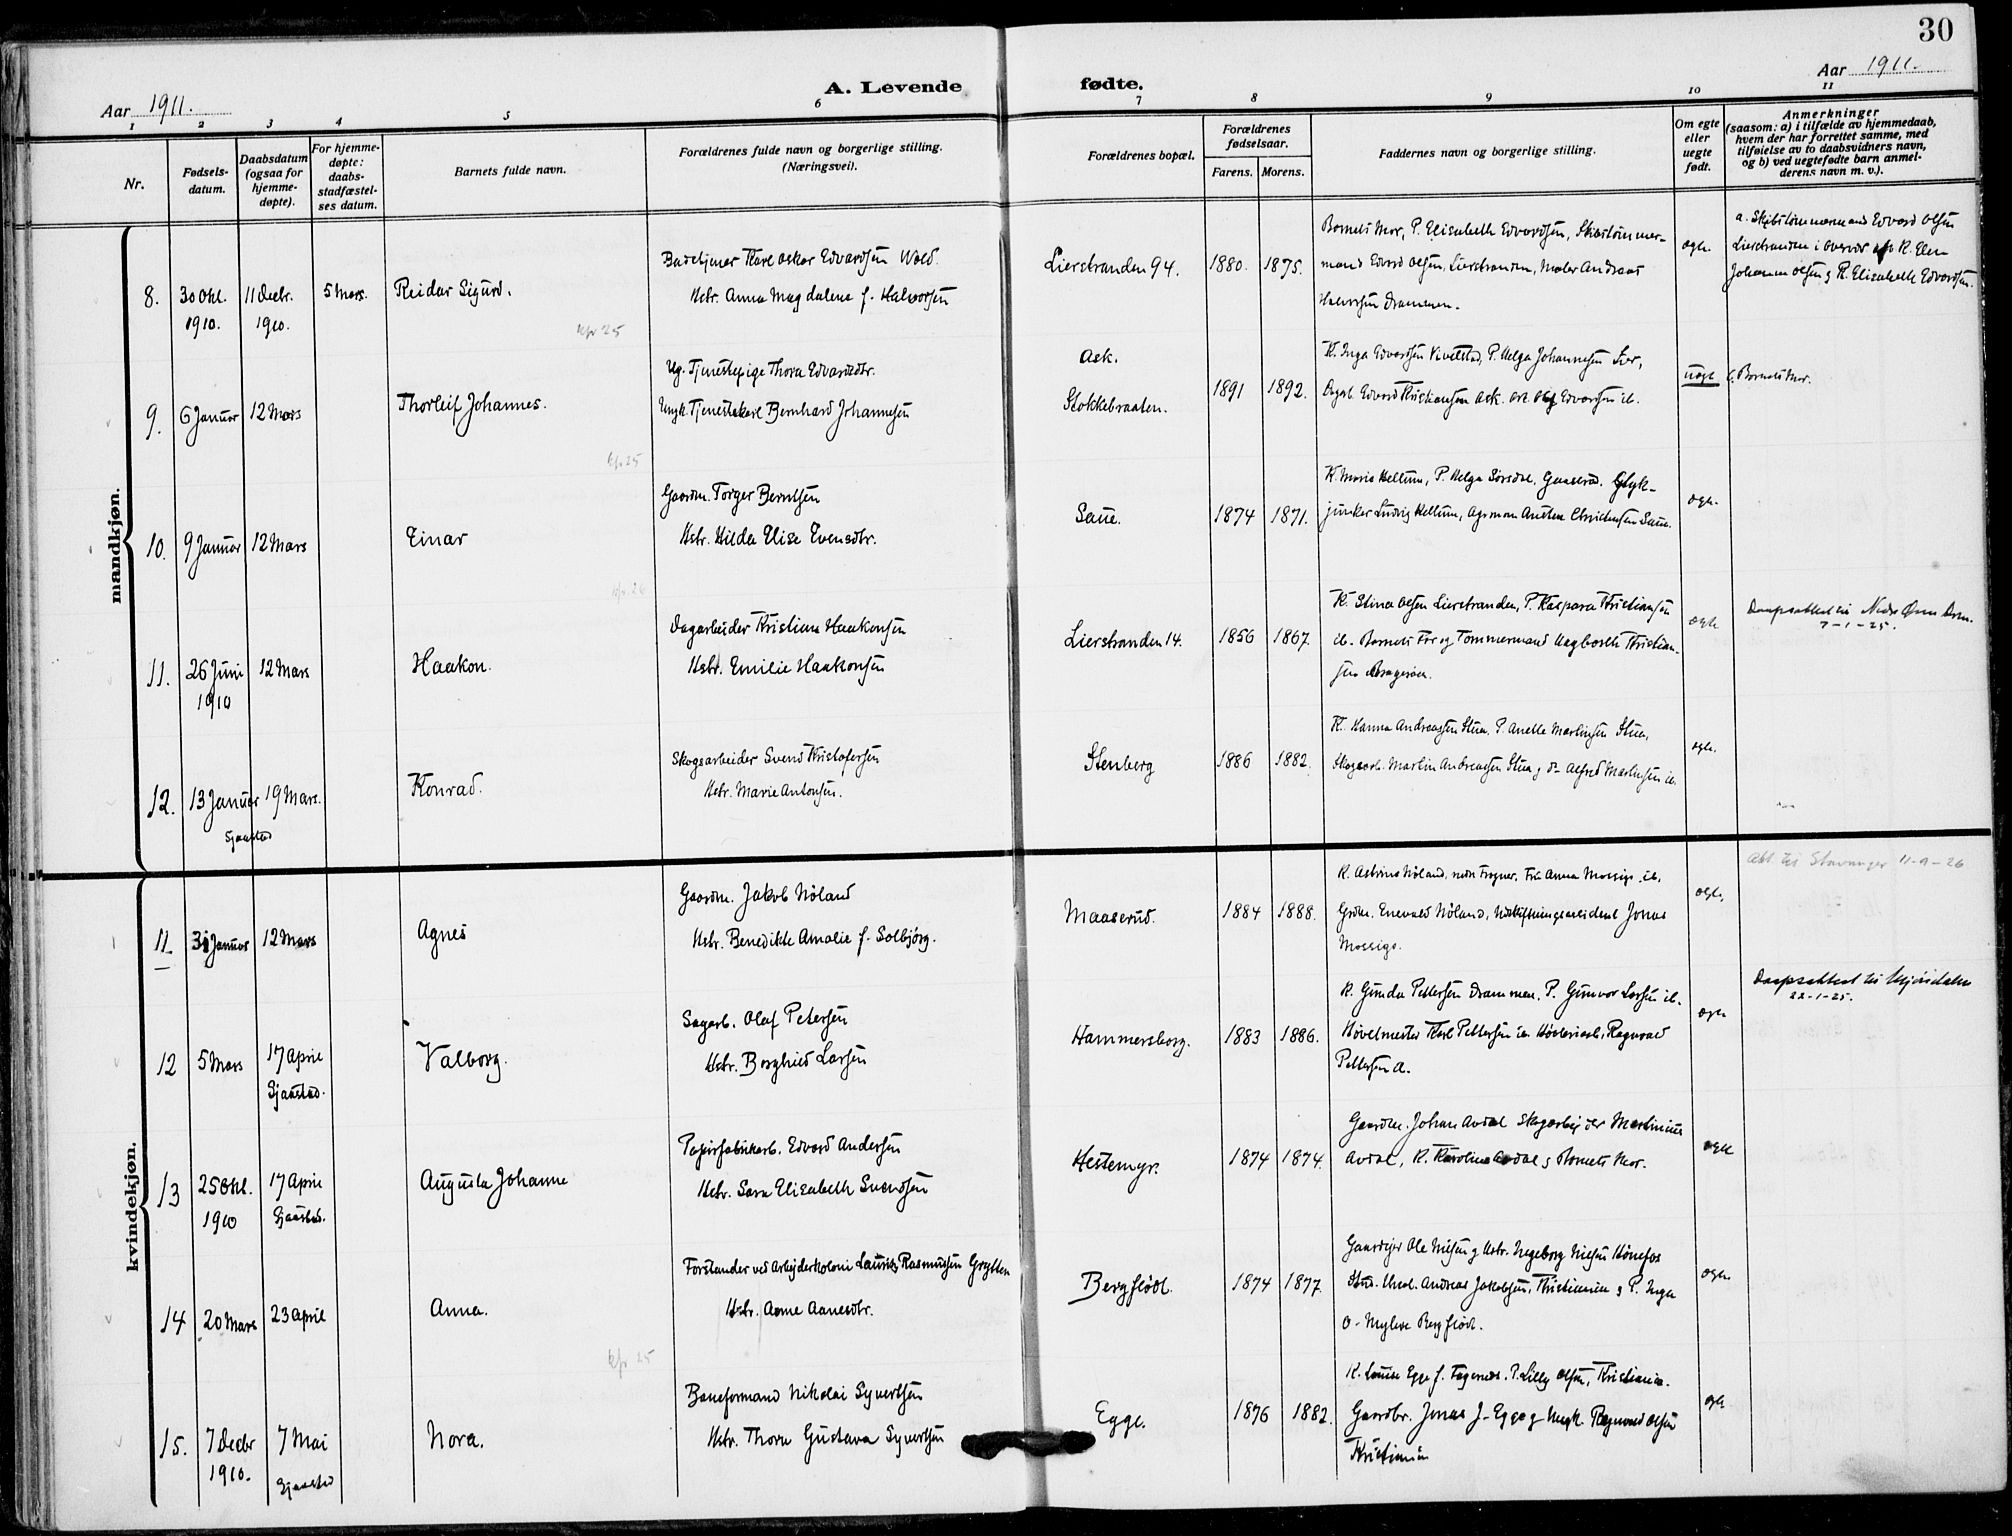 30
Aar 1911.
A. Levende fødte.
Aar 1911.
1 2 3 4 5 6 7 8 9 10 11
Nr.
Fødsels-
datum.
Daabsdatum
(ogsaa for
hjemme-
døpte).
For hjemme-
døpte:
daabs-
stadfæstel-
ses datum.
Barnets fulde navn.
Forældrenes fulde navn og borgerlige stilling.
(Næringsvei).
Forældrenes bopæl.
Forældrenes
fødselsaar.
Farens. Morens.
Faddernes navn og borgerlige stilling.
Om egte
eller
uegte
født.
Anmerkninger
(saasom: a) i tilfælde av hjemmedaab,
hvem der har forrettet samme, med
tilføielse av to daabsvidners navn,
og b) ved uegtefødte barn anmel-
derens navn m. v.).
mandkjøn.
8. 30 Okt. 1910. 11 Decbr. 1910. 5 Mars. Reidar Sigurd.
kfr 25
Karl Oskar Edvardsen Wold.
Hstr. Anna Magdalena f. Halvorsen
Lierstranden 94. 1880. 1875.
Barnets Mor, P. Elisabeth Edvardsen, Skibstømmer-
mand Edvard Olsen, Lierstranden, Maler Andreas
Halvorsen Drammen.
egte
a. Skibstømmermand Edvard Olsen
Lierstranden i overvær af K. Elen
Johanne Olsen & P. Elisabeth Edvardsen.
9. 6 Januar 12 Mars Thorleif Johannes.
kfr 25
Ug. Tjenestepige Thora Edvardsdtr.
Ungk. Tjenestekarl Bernhard Johannesen
Ask.
Stokkebraaten. 1891 1892.
K. Inga Edvardsen, P. Helga Johannesen Lier,
Dagarb. Edvard Kristiansen Ask. Edvardsen ib.
uegte
b. Barnets Mor.
10. 9 Januar 12 Mars Einar
kfr. 26
Gaardm. Torger Berntsen
Hstr. Hilda Elise Evensdtr.
Saue. 1874 1871.
K. Maria Hellum, P. Helga Sørsdal, Gaaserud. Glyk-
junker Ludvig Hellum, Agrman Anders Christensen Saue.
egte.
11. 26 Juni 1910 12 Mars Haakon.
Dagarbeider Kristian Haakonsen
Hstr. Emilie Haakonsen
Lierstranden 14. 1856 1867.
K. Stina Olsen Lierstranden, P. Kaspara Kristiansen
ib. Barnets Far og Tømmermand Hagbarth Kristian-
sen Bragerøen.
egte
Daapsattest til Nedre Øren Drm.
7-1-25.
12. 13 Januar 19 Mars. Konrad.
Sjaastad
Skogsarbeider Svend Kristofersen
Hstr. Marie Antonsen.
Stenberg 1886 1882.
K. Hanna Andreassen Stua. P. Anette Martinsen Stua,
Skogsarb. Martin Andreassen Stua & do Alfred Martinsen ib.
egte.
kvindekjøn.
11. 31 Januar 12 Mars Agnes
Gaardm. Jakob Høland
Hstr. Benedikte Amalie f. Solbjørg.
Maaserud. 1884 1888.
K. Høland, nedre Frogner. Fru Anna Mossige ib.
Grdm. Enevald Høland, Udskiftningsassistent Jonas
Mossige.
egte.
Att til Stavanger 11-9-26
12 5 Mars 17 April Valborg.
Sjaastad.
Sagarb. Olaf Petersen
Hstr. Borghild Larsen
Hammersborg. 1883 1886.
K. Gunda Pettersen Drammen, P. Gunvor Larsen ib.
Høvelmester Karl Pettersen ib. Ragnvald
Pettersen ib.
egte
Daapsattest til Mjøndalen
22-1-25.
13 25 Okt. 1910 17 April Augusta Johanne
Sjaastad.
Papirfabrikarb. Edvard Andersen
Hstr. Sara Elisabeth Svendsen
Hestemyr. 1874 1874.
Gaardm. Johan Avdal Skogarbeider Martinius
Avdal, K. Karoline Avdal & Barnets Mor.
egte
14 20 Mars 23 April Anna.
kfr 25
Forstander ved Arbeiderkoloni Lauritz Rasmussen Grytten
Hstr. Anne Aanesdtr.
Bergflødt. 1874 1877.
Gaardeier Ole Nilsen & Hstr. Ingeborg Nilsen Hønefos
Stud. Med. Andreas Jakobsen, Kristiania & P. Inga
O. Myhre Bergflødt.
egte
15. 7 Decbr 1910. 7 Mai Nora.
Sjaastad
Baneformand Nikolai Syvertsen
Hstr. Thora Gustava Syvertsen
Egge. 1876 1882.
K. Louise Egge f. Fagernes, P. Lilly Olsen, Kristiania.
Gaardbr. Jonas J. Egge & Ungk. Ragnvald Olsen
Kristiania
egte